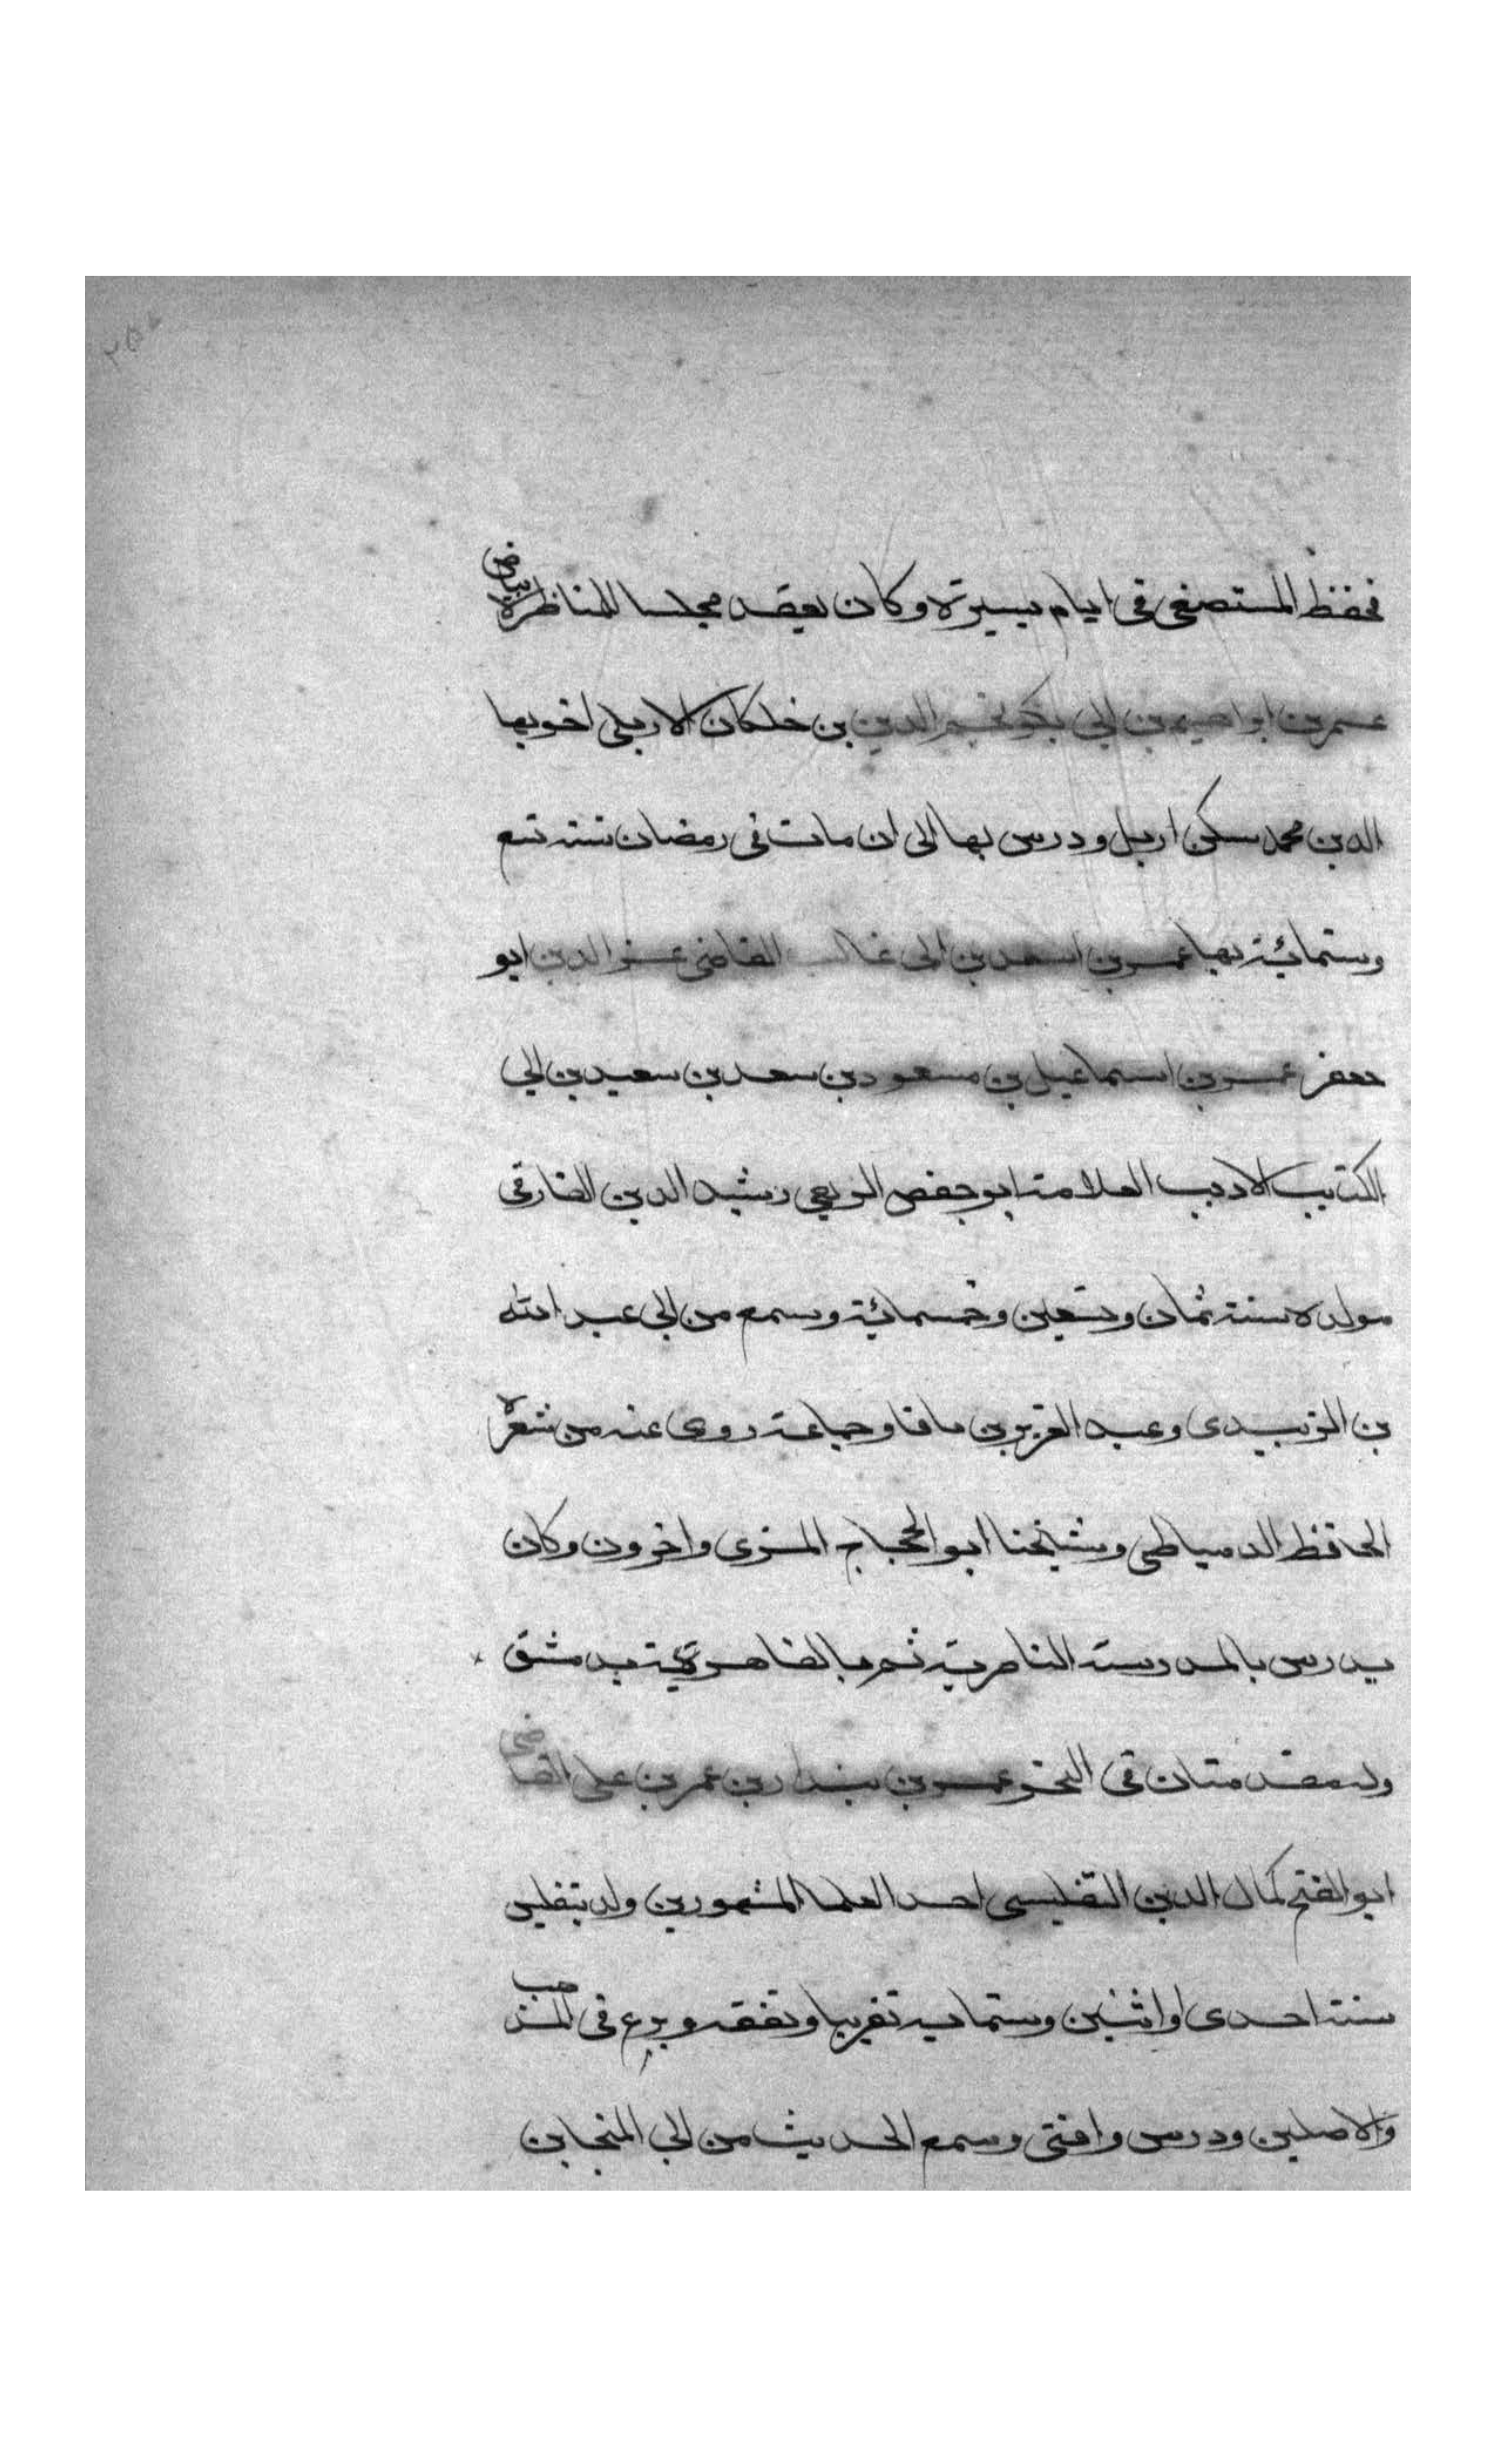 فحفظ المستصفى فى ايام يسيرة وكان يعقد مجلسا للمناظرة بياض
عمر بن ابراهيم بن ابى بكر نجم الدين بن خلكان الاربلى اخو بها
الدين محمد سكن اربل ودرس بها الى ان مات فى رمضان سنة تسع
وستمائة بها عمر بن اسعد بن ابى غالب القاضى عز الدين ابو
حعفر عمر بن اسماعيل بن مسعود بن سعد بن سعيد بن ابي
الكتايب الاديب العلامة ابو حفص الربعى رشيد الدين الفارقى
مولده سنة ثمان وتسعين وخمسمائة وسمع من ابى عبد الله
بن الزبيدى وعبد العزيز بن باقا وجماعة روى عنه من شعره
الحافظ الدمياطى وشيخنا ابو الحجاج المزى واخرون وكان
يدرس بالمدرسة الناصرية ثم بالظاهرية بدمشق
وله مقدمتان فى النحو عمر بن بندار بن عمر بن على القاضى
ابو الفتح كمال الدين التفليسى احد العلما المشهورين ولد بتفليس
سنة احدى او اثنين وستماية تقريبا وتفقه وبرع فى المذهب
والاصلين ودرس وافتى وسمع الحديث من ابي المنجا بن